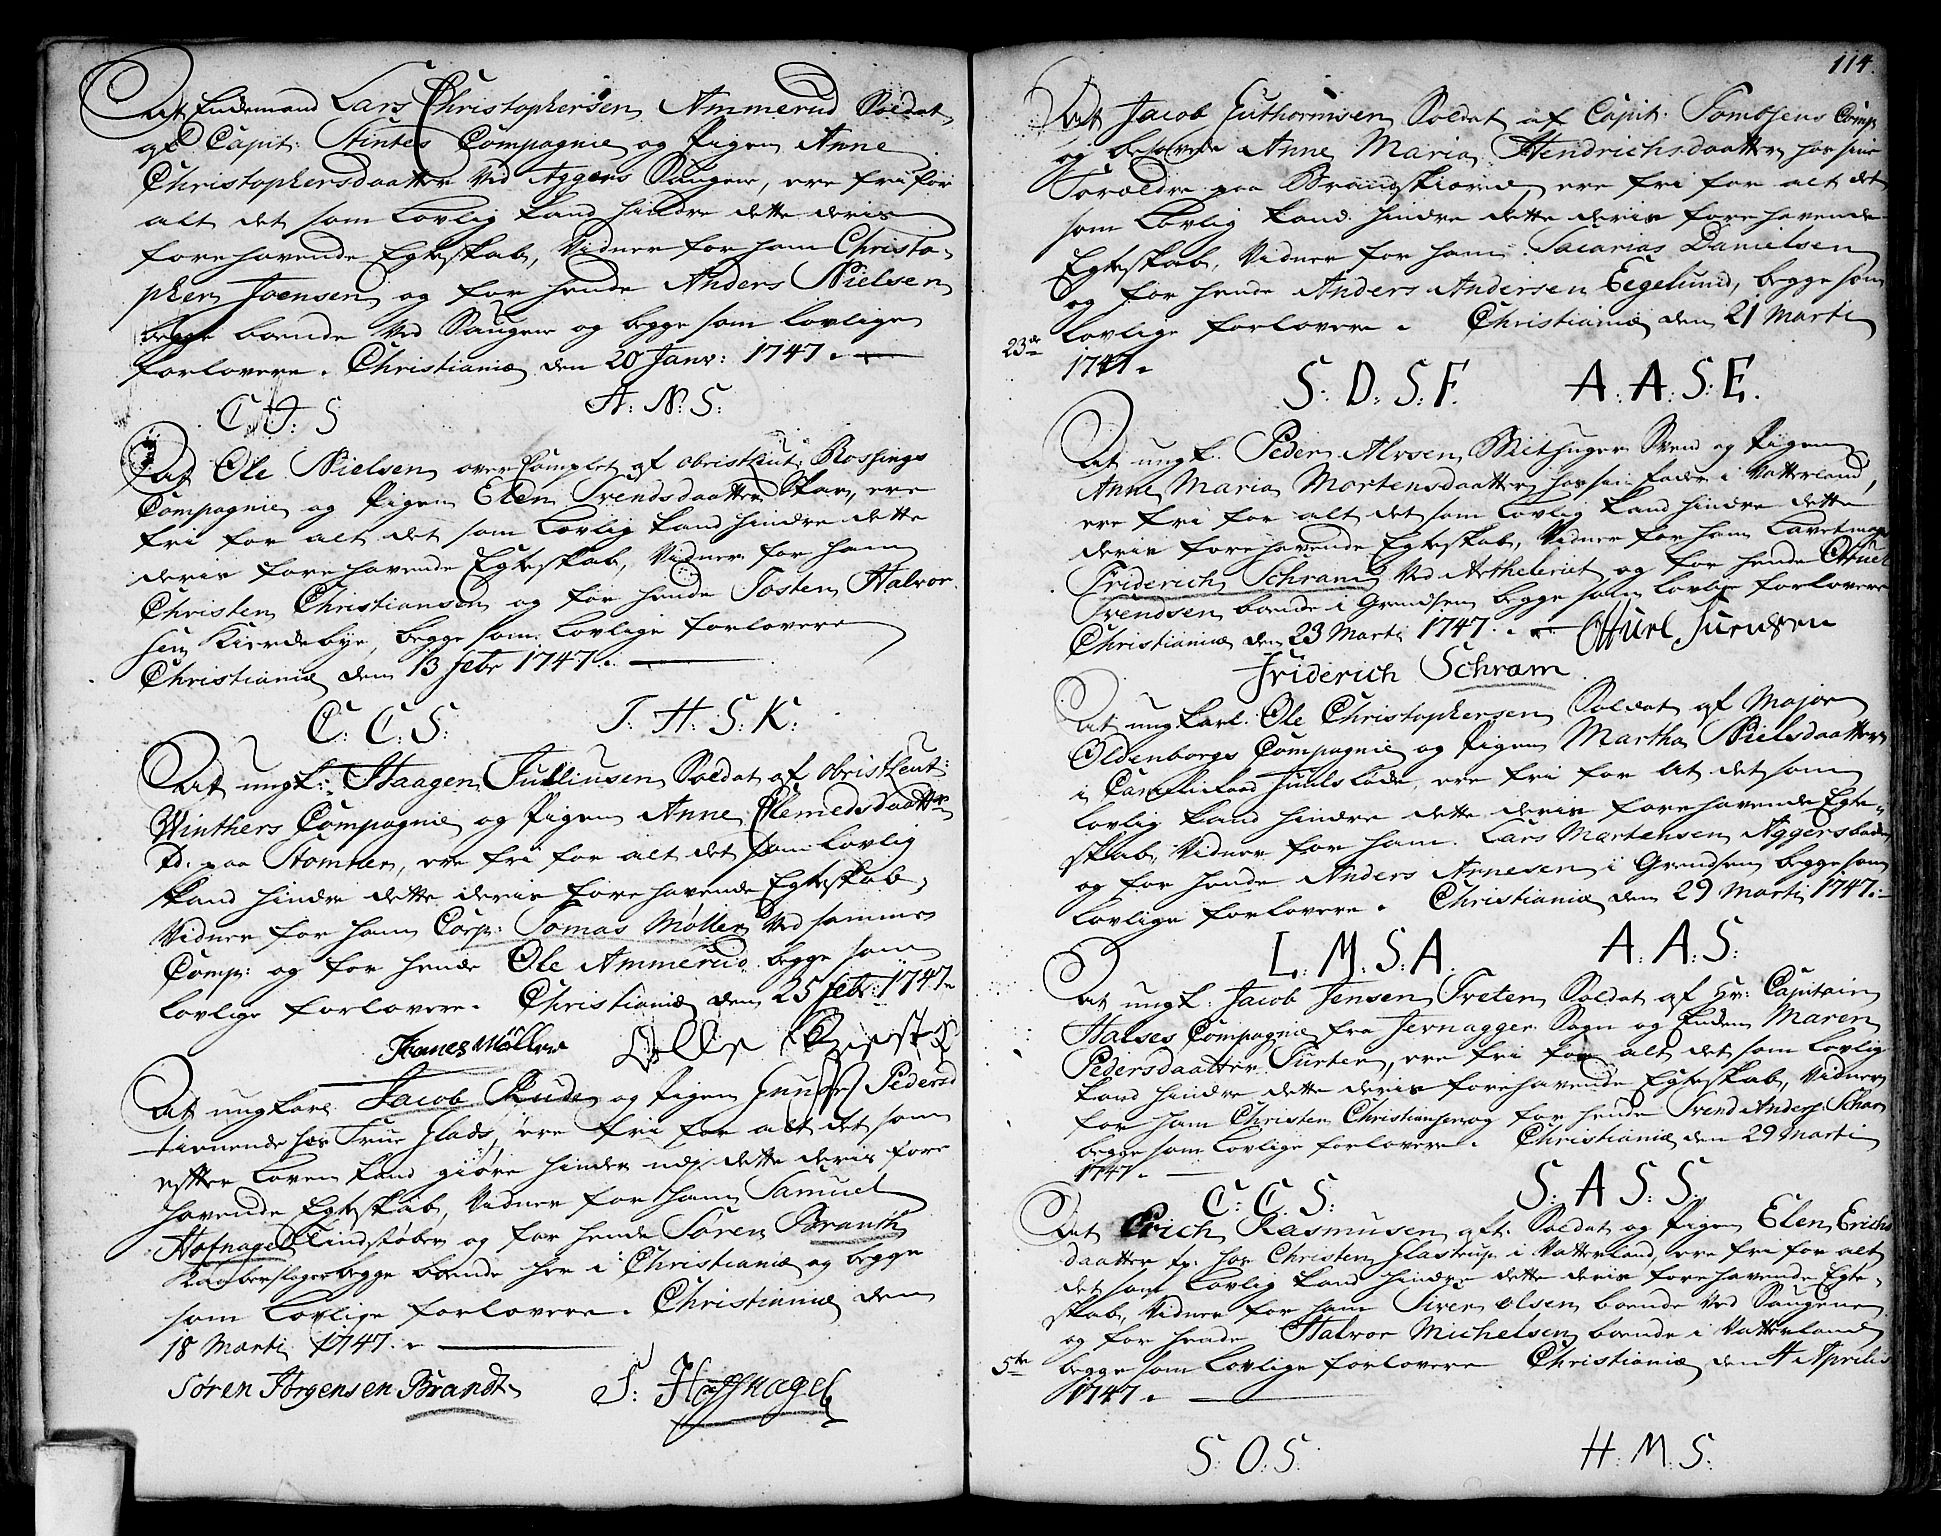 At Enkemand Lars Christophersen Ammerud Soldat
af Capit: Hintes Compagnie og Pigen Anne
Christophersdaatter Ved Aggers Saugene, ere fri for
alt det som Lovlig kand hindre dette deris
forehavende Egteskab, Vidner for ham Christo-
pher Joensen og for hende Anders Nielsen
begge boende Ved Saugene og begge som Lovlige
forlovere. Christiania den 20 Janv: 1747.
C J S A: N: S:
At Ole Nielsen over Complet af obristLeut: Rossings
Compagnie og Pigen Elen Svendsdaatter Skar, ere
fri for alt det som Lovlig kand hindre dette
deris forehavende Egteskab, Vidner for ham
Christen Christiansen og for hende Tosten Halvor-
sen Kierdebye, begge som Lovlige forlovere
Christiania den 13 Febr 1747.
C: C: S: T. H: S: K:
At ungk: Haagen Julliusen Soldat af obristLeut:
Winthers Compagnie og Pigen Anne Clemedsdaatter
td. paa, ere fri for alt det som Lovlig
kand hindre dette deris forehavende Egteskab,
Vidner for ham Corp: Tomas Møller Ved samme
Comp: og for hende Ole Ammerud begge som
Lovlige forlovere. Christiania den 25 Febr: 1747.
Møller Olle
At ungkarl Jacob Rude og Pigen Pedersd
tienende hos Frue Glads, ere fri for alt det som
efter Loven kand giøre hinder udj dette deris fore
havende Egteskab, Vidner for ham Samuel
Hofnagel Tindstøber og for hende Søren Brandt
Kaaberslager begge boende her i Christiania og begge
som Lovlige forlovere. Christiania den
18 Marti 1747.
Søren Jørgensen Brandt S: Hoffnagel
114.
At Jacob Guthormsen Soldat af Capit: Tombsens Comp
og besovede Anne Maria Hendrichsdaatter hos sine
Forældre paa, ere fri for alt det
som Lovlig kand hindre dette deris forehavende
Egteskab, Vidner for ham Sacarias Danielsen
og for hende Anders Andersen Eegelund, begge som
Lovlige forlovere. Christiania den 21 Marti
23de
1747.
S: D: S: F. A: A: S: E.
At ungk. Peder Alvsen Svend og Pigen
Anne Maria Mortensdaatter hos sin fader i Vatterland,
ere fri for alt det som Lovlig kand hindre dette
deris forehavende Egteskab, Vidner for ham
Friderich Schram Ved Artheleriet og for hende
Svendsen boende i Grendsen begge som Lovlige forlovere
Christiania den 23 Marti 1747.
Friderich Schram
At ungkarl. Ole Christophersen Soldat af Major
Oldenborgs Compagnie og Pigen Martha Nielsdaatter
i, ere fri for alt det som
Lovlig kand hindre dette deris forehavende Egte-
skab, Vidner for ham Lars Martensen
og for hende Anders Arnesen i Grendsen begge som
Lovlige forlovere. Christiania den 29 Marti 1747.
L: M: S: A. A: A: S:
At ungk: Jacob Jensen Treten Soldat af Hr: Capitain
Halses Compagnie fra Jernagger Sogn og Enken Maren
Pedersdaatter Furten, ere fri for alt det som Lovlig
kand hindre dette deris forehavende Egteskab, Vidner
for ham Christen Christiansen og for hende Svend Anders: Schar
begge som Lovlige forlovere. Christiania den 29 Marti
1747.
C: C: S: S: A S: S.
At Erich Rasmusen aft: Soldat og Pigen Elen Erichs
daatter tj. hos Christen Glastrup i Vatterland, ere fri for alt
det som Lovlig kand hindre dette deris forehavende Egte-
skab, Vidner for ham Siver Olsen boende Ved Saugene
og for hende Halvor Michelsen boende i Vatterland
5te begge som Lovlige forlovere Christiania den 4 Aprilis
1747.
S: O: S: H: M: S: